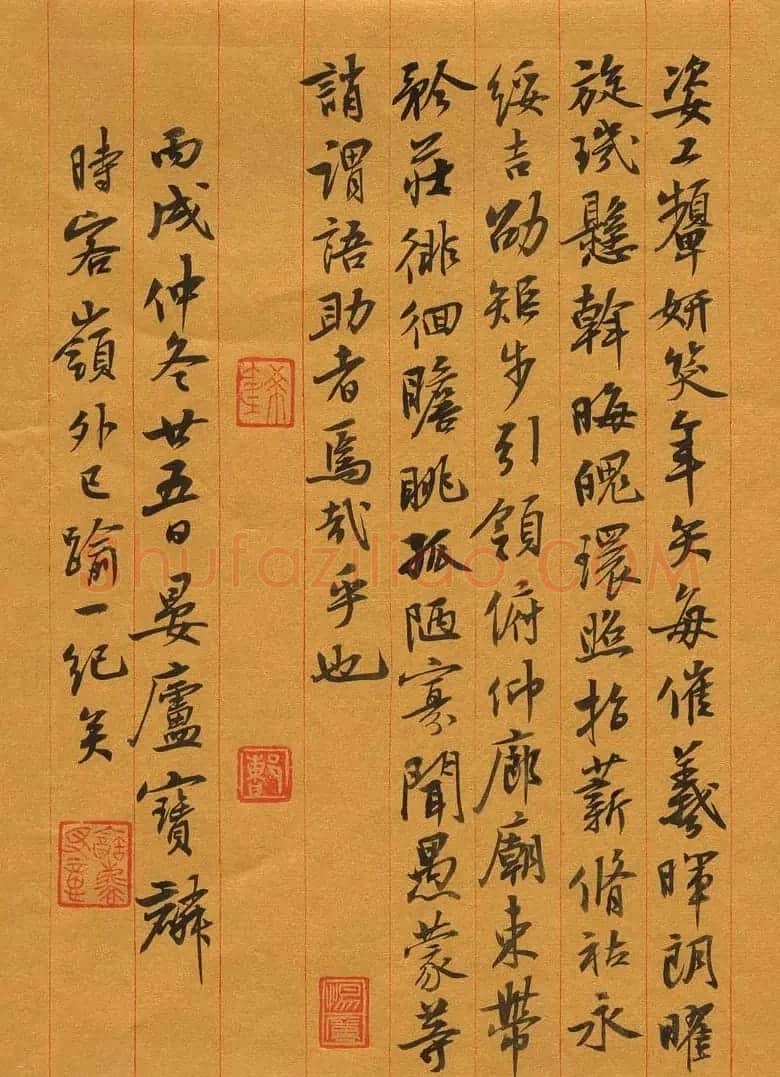 姿工顰妍笑年矢每催羲暉朗曜
旋璣懸斡晦魄環照指薪脩祜永
綏吉劭矩步引領俯仰廊廟束帶
矜莊徘徊瞻眺孤陋寡聞愚蒙等
誚謂語助者焉哉乎也
丙戌仲冬廿五日晏廬寶
時客嶺外已踰一紀矣
shufaziliao.COM